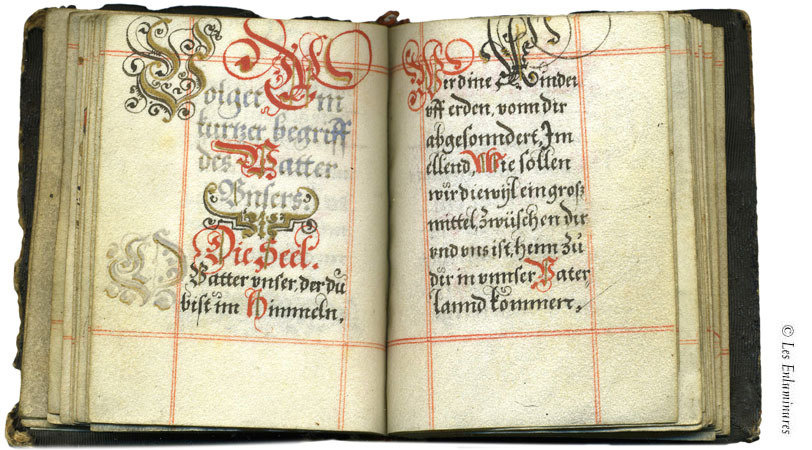 Volget Ein
kurtzer begriff
des Vatter
Vnsers.
Die Seel.
Vatter vnser, der du
bist im Himmeln,
Wer dine Kinder
vff erden, vonn dir
abgesonndert, Im
ellend, Wie sollen
wir diewyl ein groß
mittel, zwüschen dir
vnd vns ist, henn zů
dir in vnnser Vater
lannd kommen,
© Les Enluminures